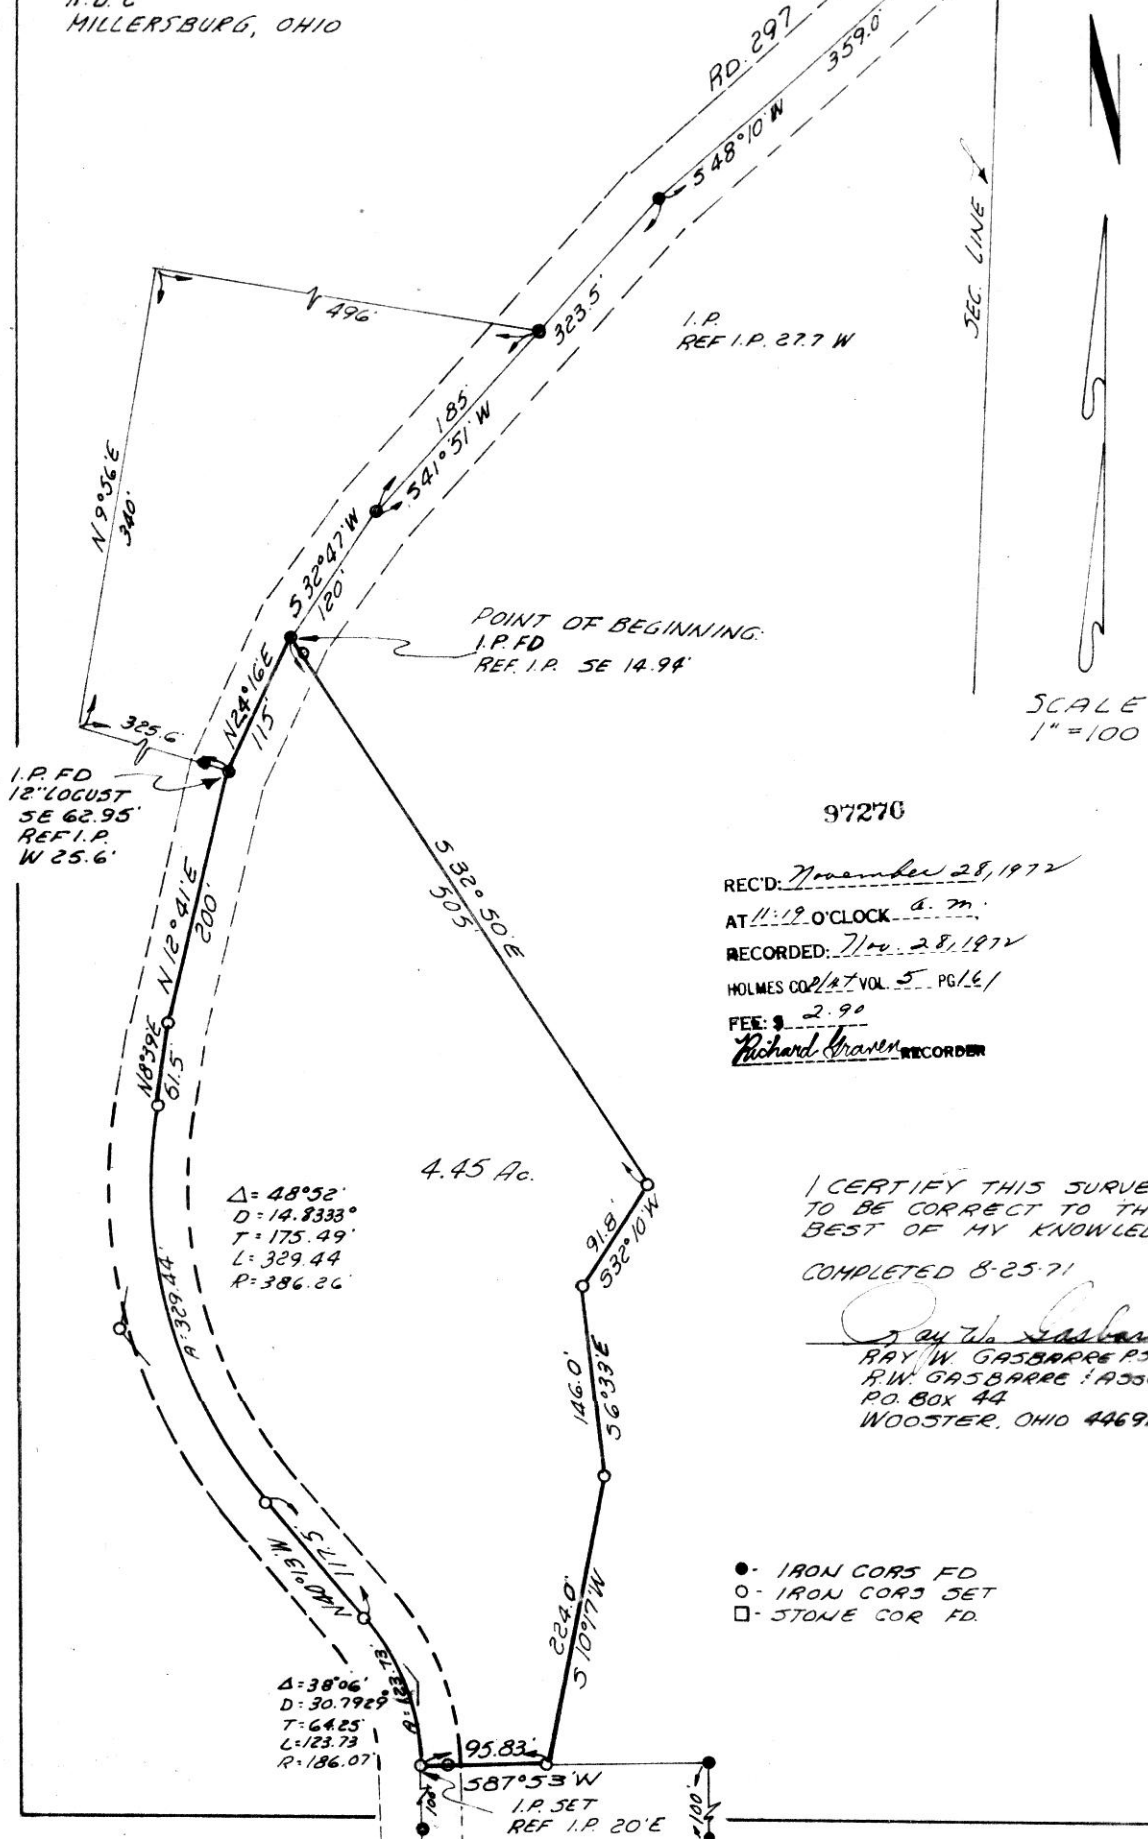 MILLERSBURG, OHIO
RD. 297
359.0'
S 48°10' W
SEC. LINE
N
496'
323.5'
I.P.
REF I.P. 27.7 W
185'
S 41°51' W
N 9°56' E
340'
S 32°47' W
120'
POINT OF BEGINNING:
I.P. FD
REF. I.P. SE 14.94'
N 24°16' E
115'
325.6'
SCALE
1" = 100
I.P. FD
12" LOCUST
SE 62.95'
REF I.P.
W 25.6'
97276
REC'D: November 28, 1972
AT 11:19 O'CLOCK a. m.
RECORDED: Nov. 28, 1972
HOLMES CO Plat VOL. 5 PG 161
FEE: $ 2.90
Richard Graven RECORDER
S 32°50' E
505'
N 12°41' E
200'
N 8°39' E
61.5'
4.45 Ac.
Δ = 48°52'
D = 14.8333°
T = 175.49'
L = 329.44
R = 386.26'
A = 329.44'
91.8'
S 32°10' W
I CERTIFY THIS SURVE
TO BE CORRECT TO TH
BEST OF MY KNOWLE
COMPLETED 8-25-71
Ray W. Gasbar
RAY W. GASBARRE P.S
R.W. GASBARRE & ASS
P.O. BOX 44
WOOSTER, OHIO 4469
146.0'
S 6°33' E
117.5'
N 40°13' W
224.0'
S 10°17' W
●- IRON CORS FD
○- IRON CORS SET
□- STONE COR FD.
Δ = 38°06'
D = 30.7929°
T = 64.25'
L = 123.73
R = 186.07'
A = 123.73'
95.83'
S 87°53' W
I.P. SET
REF I.P. 20' E
100'
100'